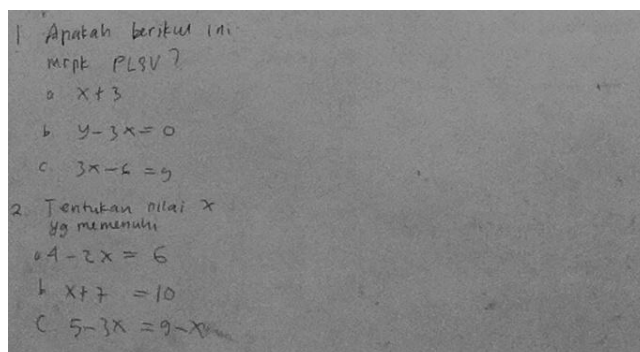 1 Apakah berikut ini
mrpk PLSV?
a x + 3
b. y - 3x = 0
c. 3x - 6 = 9
2. Tentukan nilai x
yg memenuhi
a 4 - 2x = 6
b x + 7 = 10
c 5 - 3x = 9 - x